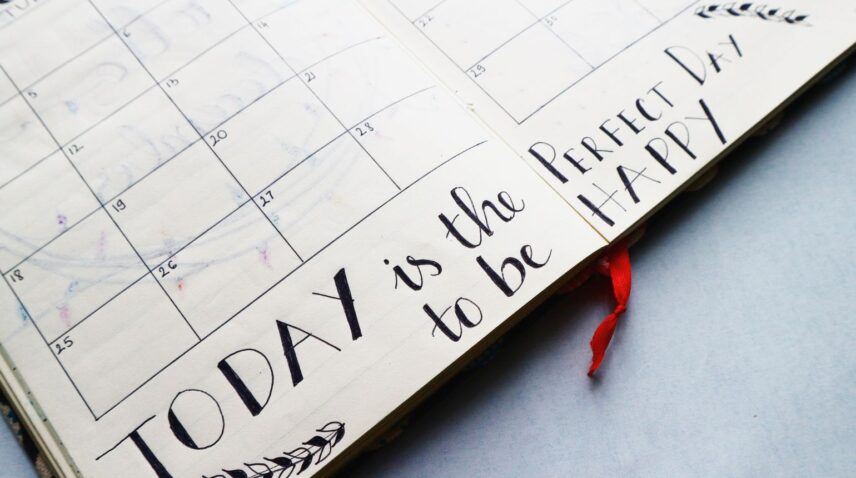 5 6
12 13 14
18 19 20 21
25 26 27 28
22
29 30
TODAY is the PERFECT DAY
to be HAPPY